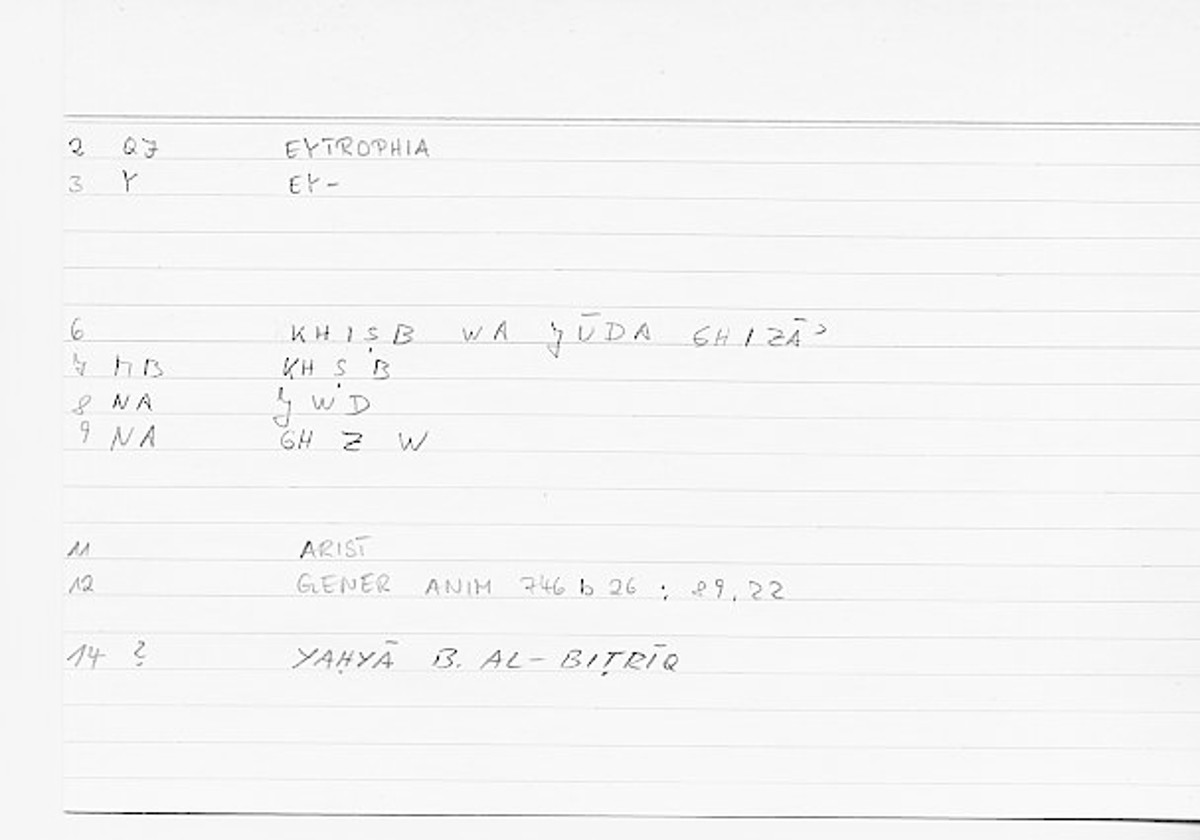 2 QJ EYTROPHIA
3 Y EY-
6 KHIṢB WA ǦŪDA GHIZĀʾ
7 MB KH Ṣ B
8 NA Ǧ W D
9 NA GH Z W
11 ARIST
12 GENER ANIM 746 b 26 : 89,22
14 ? YAḤYĀ B. AL-BIṬRĪQ